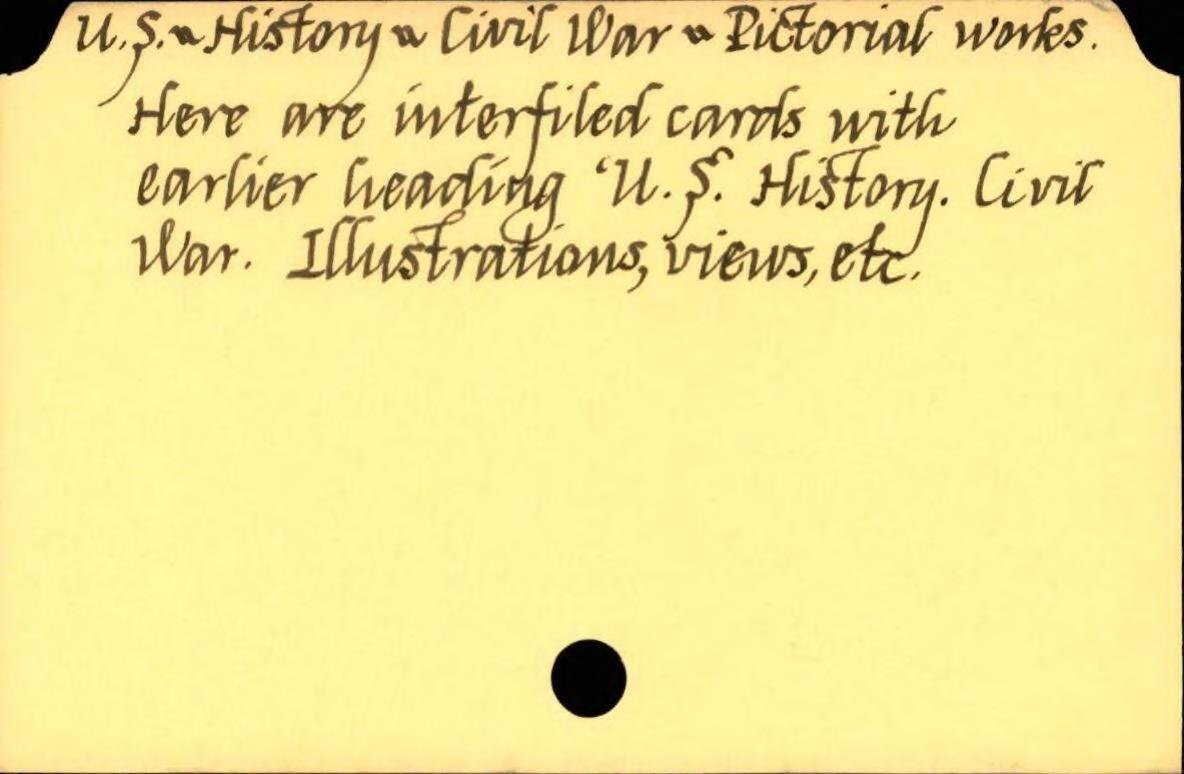 U.S. - History - Civil War - Pictorial works.
Here are interfiled cards with
earlier heading 'U.S. History. Civil
War. Illustrations, views, etc.